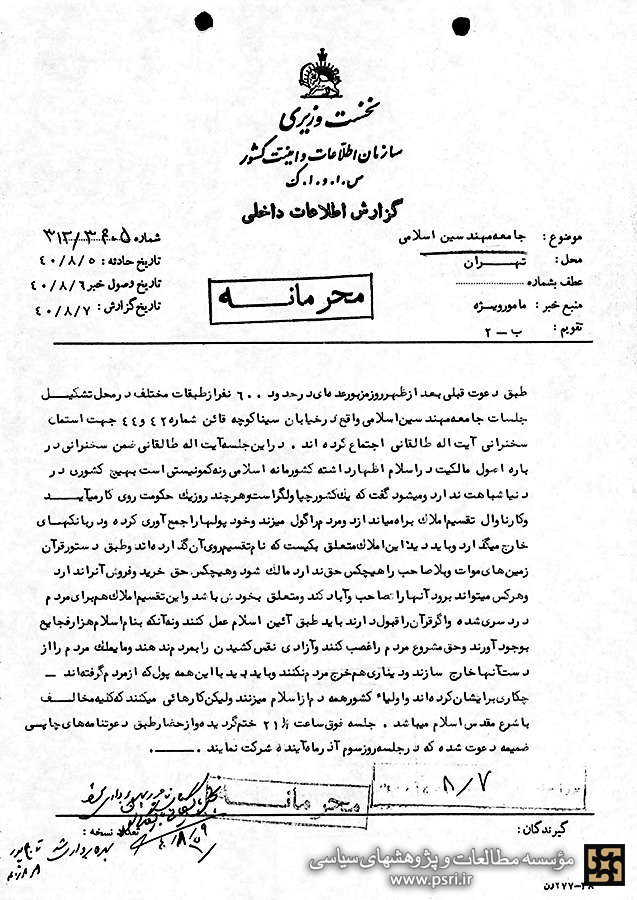 نخست وزیری
سازمان اطلاعات و امنیت کشور
س.ا.و.ا.ک
گزارش اطلاعات داخلی
موضوع : جامعه مهندسین اسلامی
محل : تهران
عطف بشماره
منبع خبر : مامورویژه
تقویم : ب – ۲
شماره
تاریخ حادثه : ۴۰/۸/۵
تاریخ وصول خبر ۴۰/۸/۶
تاریخ گزارش : ۴۰/۸/۷
محرمانه
طبق دعوت قبلی بعد از ظهر روز مزبور عده ای در حدود ۶۰۰ نفر از طبقات مختلف در محل تشکیل
جلسات جامعه مهندسین اسلامی واقع در خیابان سینا کوچه قائن شماره ۴۲ و ۴۴ جهت استماع
سخنرانی آیت اله طالقانی اجتماع کرده اند . در این جلسه آیت اله طالقانی ضمن سخنرانی در
باره اصول مالکیت در اسلام اظهار داشته کشور مانه اسلامی ونه کمونیستی است بهیچ کشوری در
دنیا شباهت ندارد ومیشود گفت که یك کشور چپاولگراست وهر چند روز یك حکومت روی کار میآیـد
وکارناوال تقسیم املاك براه میاندازد ومردم را گول میزند وخود پولها را جمع آوری کرده و در بانکهای
خارج میگذارد وباید دید این املاك متعلق بکیست که نام تقسیم روی آن گذارده اند وطبق دستور قرآن
زمین های موات وبلا صاحب را هیچکس حق ندارد مالك شود وهیچکس حق خرید وفروش آنرا ندارد
وهرکس میتواند برود آنها را تصاحب وآباد کند ومتعلق بخودش باشد واین تقسیم املاك هم برای مردم
درد سری شده واگر قرآن را قبول دارند باید طبق آئین اسلام عمل کنند ونه آنکه بنام اسلام هزار فجایع
بوجود آورند وحق مشروع مردم را غصب کنند وآزادی نفس کشیدن را بمردم ندهند ومایملك مردم را از
دست آنها خارج سازند ودیناری هم خرج مردم نکنند وباید دید با این همه پول که از مردم گرفته اند ــ
چکاری برایشان کرده اند واولیاء کشور همه دم از اسلام میزنند ولیکن کارهائی میکنند که کلیه مخالف
با شرع مقدس اسلام میباشد . جلسه فوق ساعت ۲۱ ½ ختم گردیده واز حضار طبق دعوتنامه های چاپی
ضمیمه دعوت شده که در جلسه روز سوم آذرماه آینده شرکت نمایند .
۸/۷
محرمانه
گیرندگان :
تعداد نسخه :
بهره برداری شد
مؤسسه مطالعات و پژوهشهای سیاسی
www.psri.ir